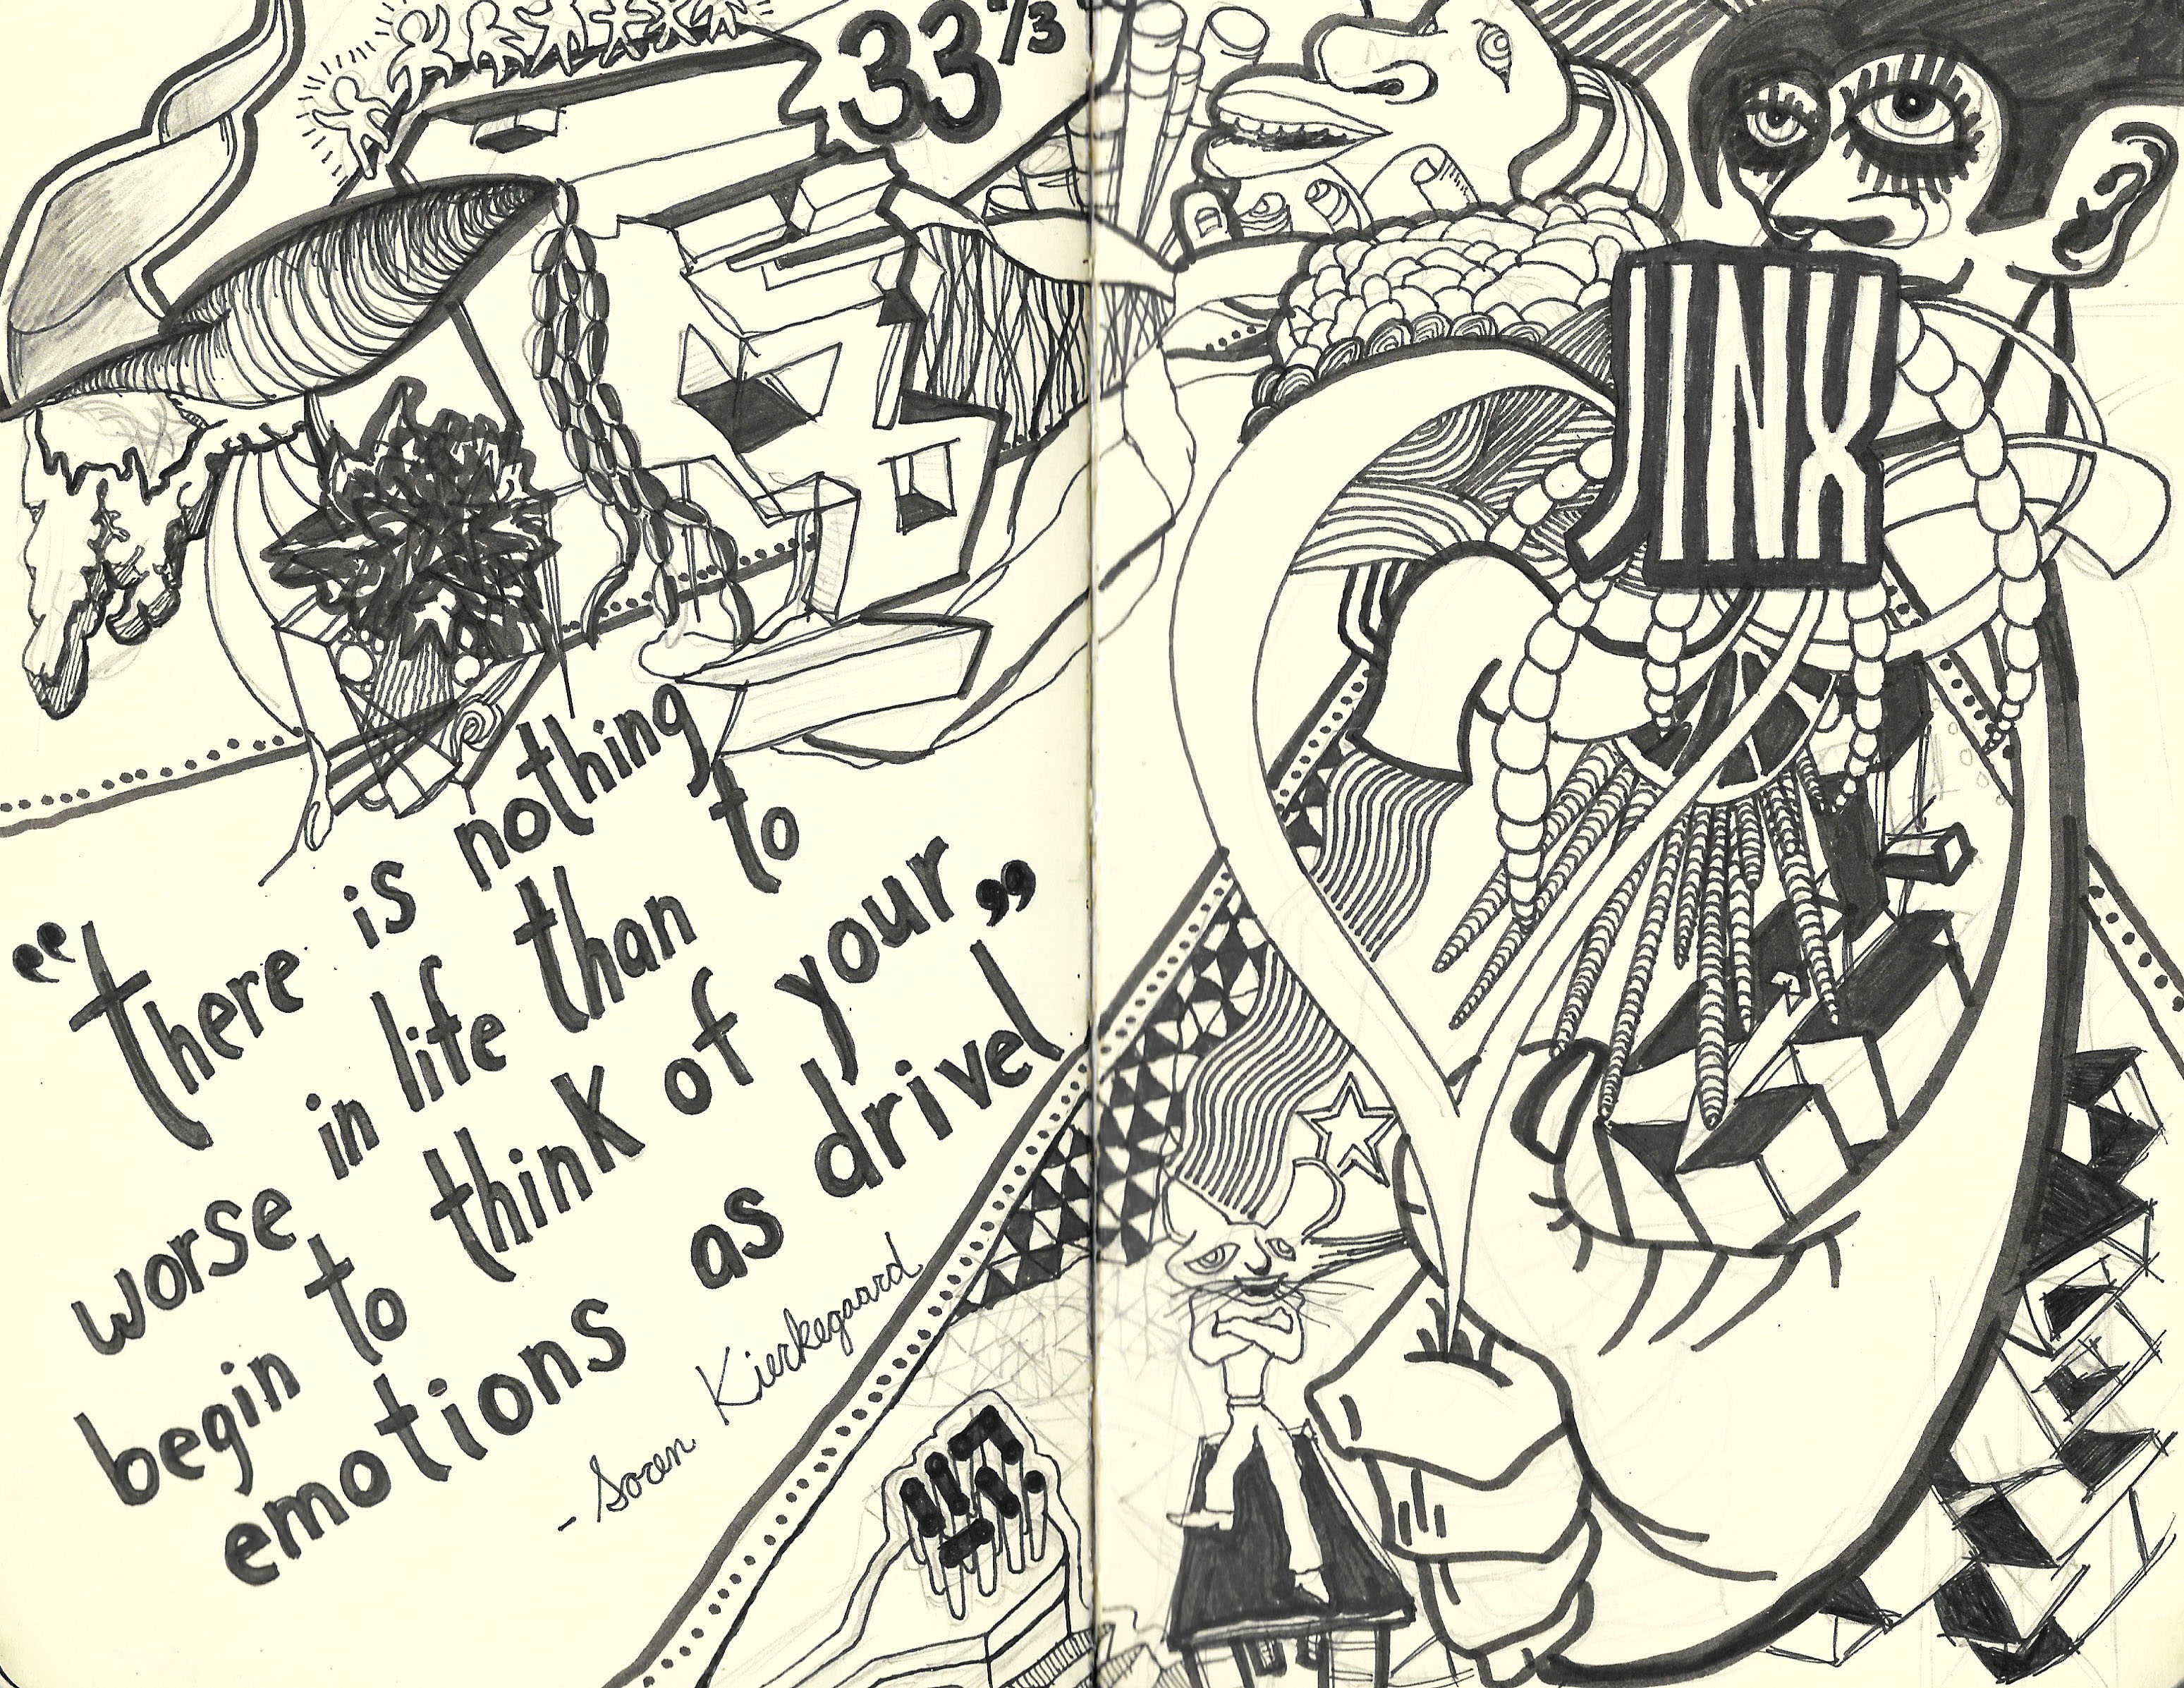 33 1/3
JINX
"there is nothing
worse in life than to
begin to think of your
emotions as drivel"
- Soren Kierkegaard